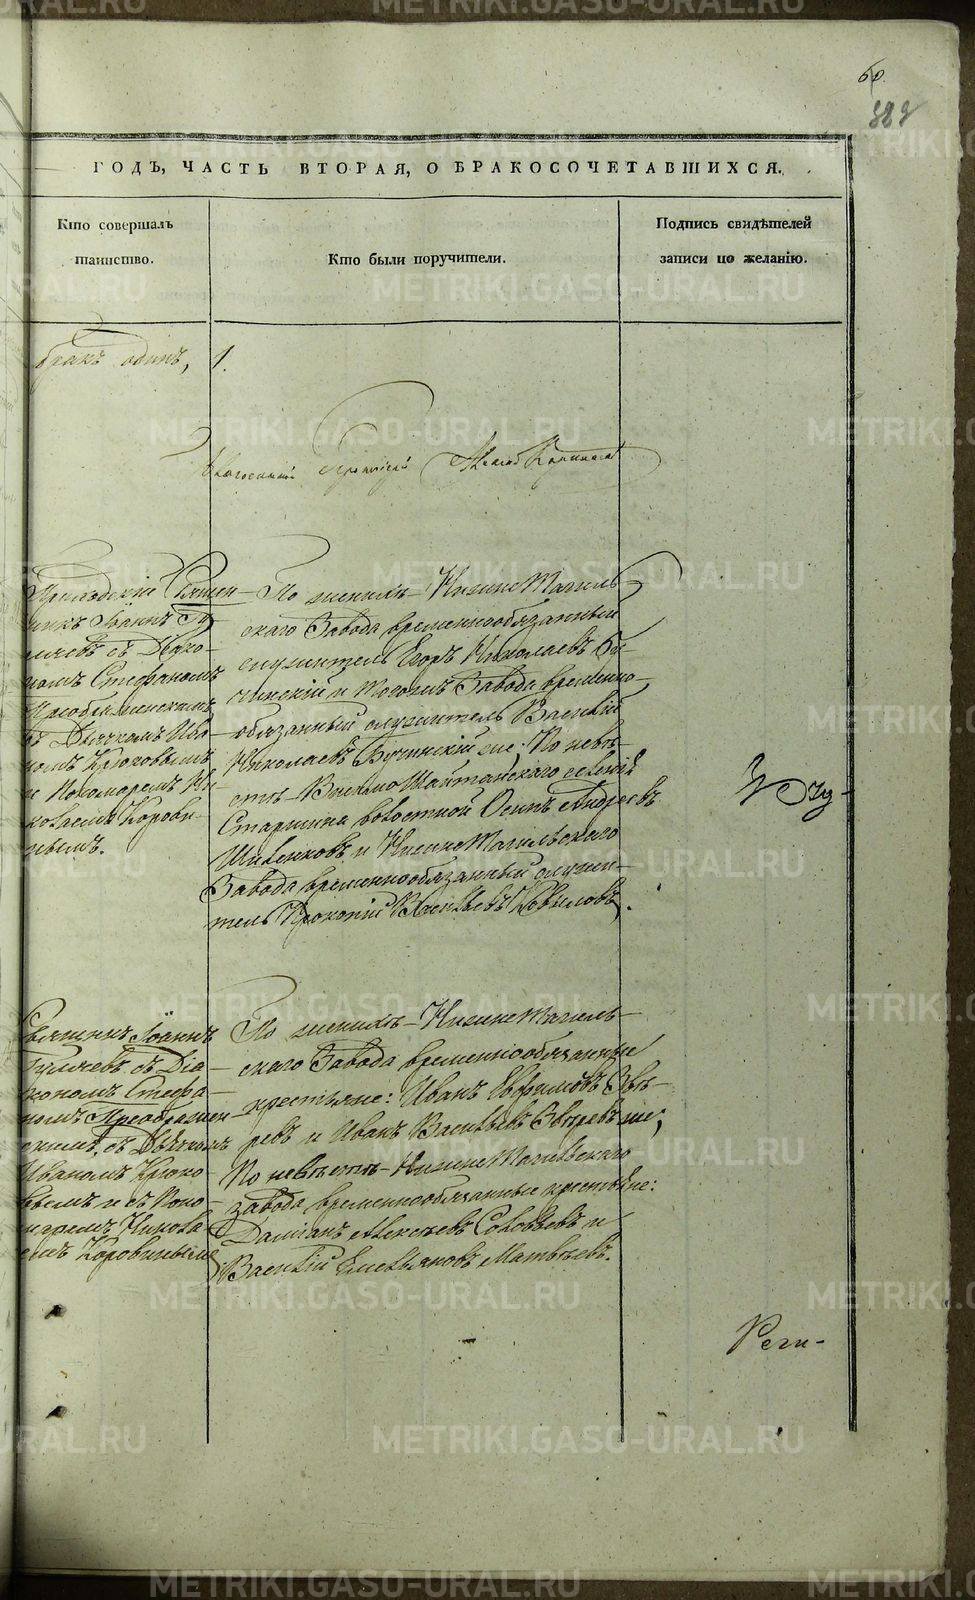 60.
ГОДЪ, ЧАСТЬ ВТОРАЯ, О БРАКОСОЧЕТАВШИХСЯ.
Кто совершалъ
таинство.
Кто были поручители.
Подпись свидѣтелей
записи по желанію.
бракъ одинъ, 1.
Приходскій Священ-
никъ Іоаннъ Гу
ляевъ съ Діако-
номъ Стефаномъ
Преображенскимъ
съ Дьячкомъ Ива
номъ Крюковымъ
и Пономаремъ Ни
колаемъ Корови-
нымъ.
По женихѣ - Нижне Тагиль
скаго Завода временнообязанный
служитель Егоръ Николаевъ Бу-
чинскій и тогожъ Завода временно
обязанный служитель Василій
Николаевъ Бучинскій же; По невѣ-
стѣ - Висимо Шайтанскаго селенія
Старшина волостной Осипъ Андреевъ
и Нижне Тагильскаго
Завода временнообязанный служи-
тель Прокопій Васильевъ
Священникъ Іоаннъ
Гуляевъ съ Діа-
кономъ Стефа-
номъ Преображен
скимъ, съ Дьячкомъ
Иваномъ Крюко-
вымъ и съ Поно-
маремъ Никола
емъ Коровинымъ
По женихѣ - Нижне Тагиль-
скаго Завода временнообязанные
крестьяне: Иванъ Евфимовъ Звѣ-
ревъ и Иванъ Васильевъ Звѣревъ же;
По невѣстѣ - Нижне Тагильскаго
завода временнообязанные крестьяне:
Даміанъ Алексѣевъ Соловьевъ и
Василій Емельяновъ Матвѣевъ.
METRIKI.GASO-URAL.RU